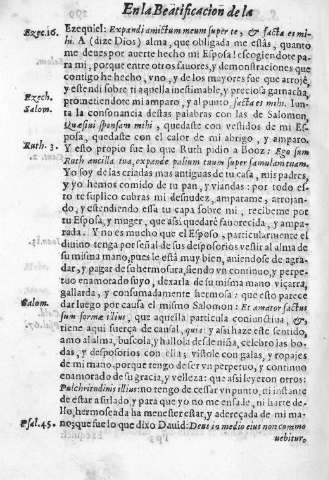 En la Beatificacion de la
Ezec.16. Ezequiel: Expandi amictum meum super te, & facta es mi-
hi. A (dize Dios) alma, que obligada me estàs, quanto
me deues por auerte hecho mi Esposa! escogiendote pa-
ra mi, porque entre otros fauores, y demonstraciones que
contigo he hecho, vno, y de los mayores fue que arrojè,
y estendi sobre ti aquella inestimable, y preciosa garnacha,
Ezech. prometiendote mi amparo, y al punto, facta es mihi. Iun-
Salom. ta la consonancia destas palabras con las de Salomon,
Quasiui sponsam mihi, quedaste con vestidos de mi Es-
posa, quedaste con el calor de mi abrigo, y amparo.
Ruth. 3. Y esto propio fue lo que Ruth pidio a Booz: Ego sum
Ruth ancilla tua, expande palium tuum super famulam tuam.
Yo soy de las criadas mas antiguas de tu casa, mis padres,
y yo hemos comido de tu pan, y viandas: por todo es-
to te suplico cubras mi desnudez, amparame, arrojan-
do, y estendiendo essa tu capa sobre mi, recibeme por
tu Esposa, y muger, que assi quedarè fauorecida, y ampa-
rada. Y no es mucho que el Esposo, particularmente el
diuino tenga por señal de sus desposorios vestir al alma de
su misma mano, pues le està muy bien, auiendose de agra-
dar, y pagar de su hermosura, siendo vn continuo, y perpe-
tuo enamorado suyo, dexarla de su misma mano viçarra,
gallarda, y consumadamente hermosa: que esto parece
Salom. dar luego por causa el mismo Salomon: Et amator factus
sum formæ illius, que aquella particula coniunctiua, &,
tiene aqui fuerça de causal, quia: y assi haze este sentido,
amo al alma, busco la, y hallola desde niña, celebro las bo-
das, y desposorios con ella; vistole con galas, y ropajes
de mi mano, porque tengo de ser vn perpetuo, y continuo
enamorado de su gracia, y velleza: que assi leyeron otros:
Pulchritudinis illius: no tengo de cessar vn punto, ni instante
de estar a su lado, y para que yo no me enfade, ni harte de-
llo, hermoseada ha menester estar, y adereçada de mi ma-
Psal.45. no; que fue lo que dixo Dauid: Deus in medio eius non commo
uebitur.